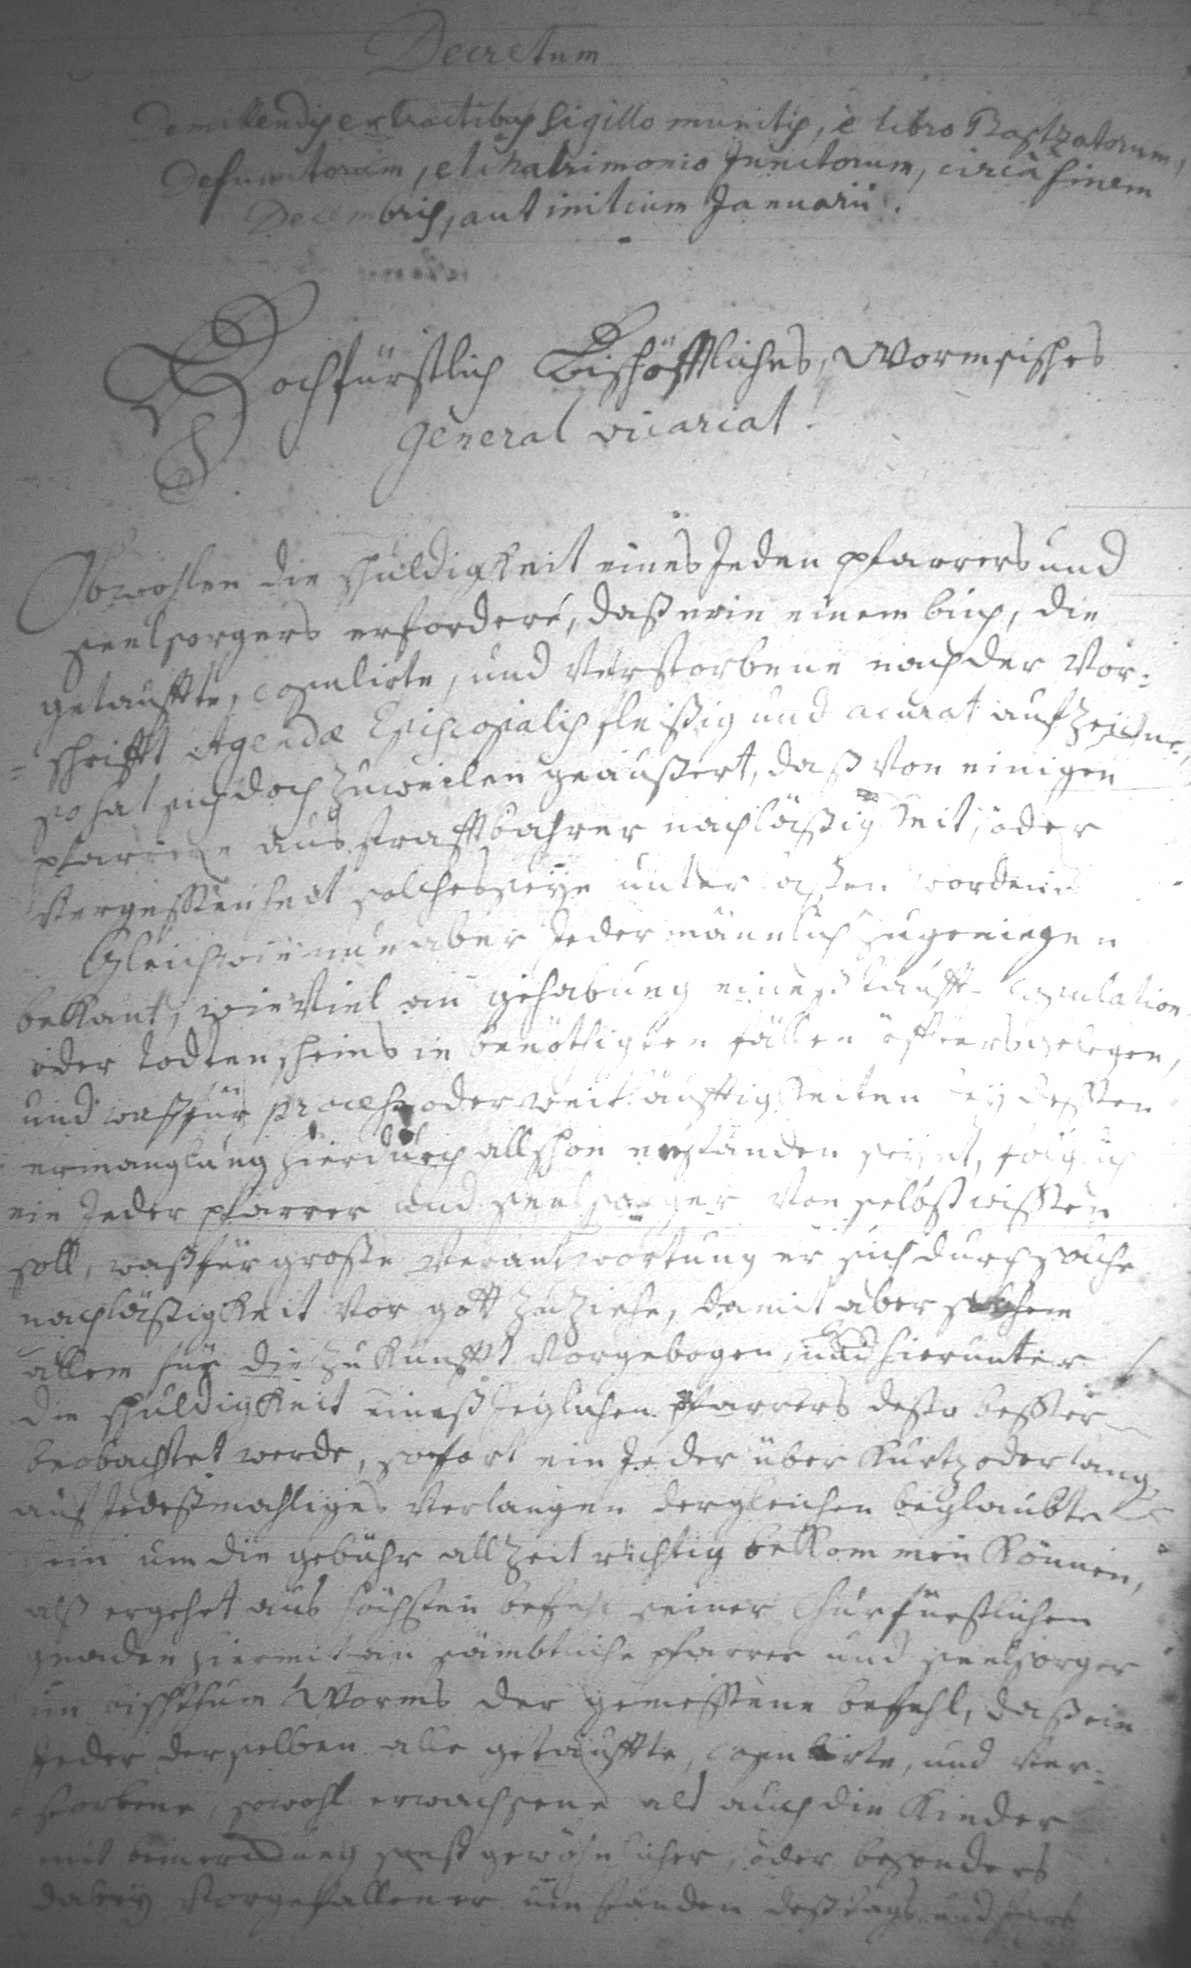 Decretum
De mittendis extractibus sigillo munitis, è libro Baptzatorum,
Defunctorum, et Matrimonio Junctorum, circà finem
Decembris, aut initium Januarii.
Hochfürstlich Bischöffliches, Wormsisches
General vicariat.
Obwohlen die schuldigkeit eines Jeden pfarrers und
seelsorgers erfordere, daß er in einem buch, die
getauffte, copulirte, und Verstorbene nach der Vor=
=schrifft Agendæ Episcopalis fleißig und acurat aufzeichne,
so hat sich doch zuweilen geaußert, daß von einigen
pfarrern aus straffbahrer nachläßigkeit, oder
Vergessenheit solches seye unterlaßen worden
Gleichwie nun aber Jedermänniglich zugenüegen
bekant, wie Viel an gehabung eines tauff- Copulation-
oder todtenscheins in benöthigten fällen öffters gelegen,
und waß für process oder weitläufftigkeiten bey dessen
ermanglung hierdurch allschon enstanden seynt, folglich
ein Jeder pfarrer und seelsorger von selbst wissen
soll, waß für große Verantwortung er sich durch solche
nachläßigkeit vor gott zuziehe, damit aber solchem
allem für die zukunfft vorgebogen, und hierunter
die schuldigkeit eineß Jeglichen pfarrers desto besser
beobachtet werde, sofort ein Jeder über kurtz oder lang
auf Jedeßmahliges Verlangen dergleichen beglaubte
schein um die gebühr allzeit richtig bekommen können,
alß ergehet aus höchsten befehl seiner Churfürstlichen
gnaden hiermit an sämbtliche pfarrer und seelsorger
im bisthum Worms der gemessene befehl, daß ein
Jeder derselben alle getauffte, copulirte, und Ver=
=storbene, sowohl erwachsene als auch die Kinder
mit bemerckung sonst gewöhnlicher, oder besonders
dabey Vorgefallener umständen deß tags und